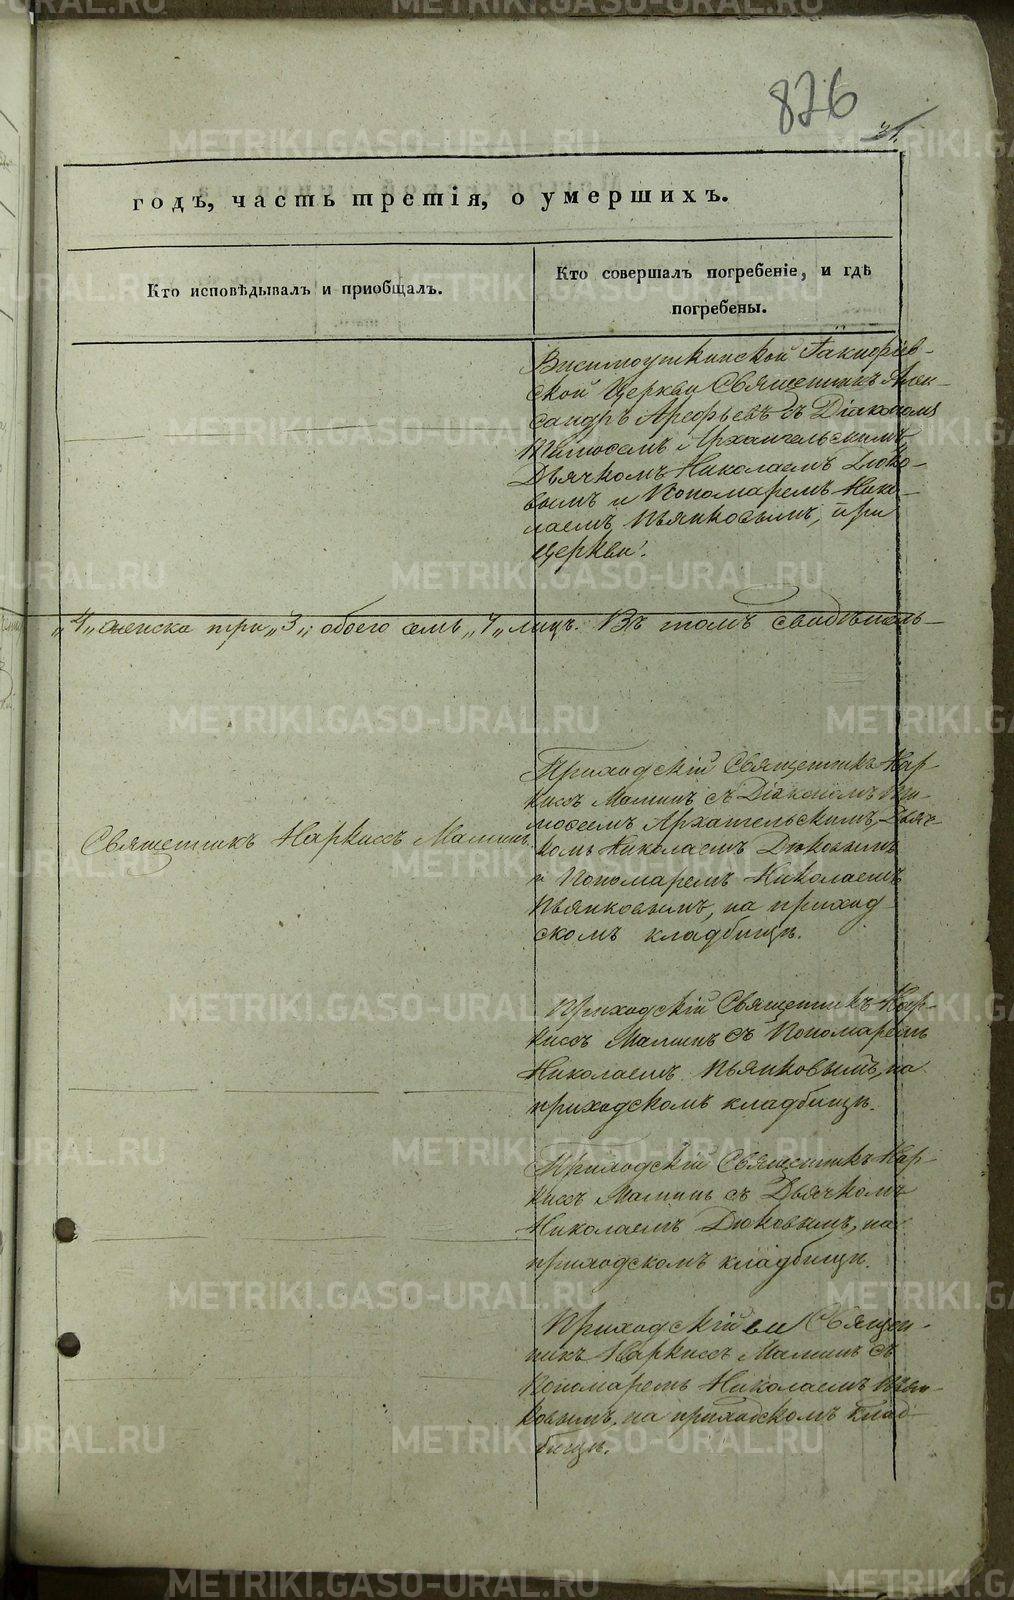 826
31.
годъ, часть третія, о умершихъ.
Кто исповѣдывалъ и приобщалъ.
Кто совершалъ погребеніе, и гдѣ
погребены.
Висимоуткинской
ской Церкви Священникъ Алек-
сандръ Арефьевъ съ Діакономъ
Тимоѳеемъ Архангельскимъ,
Дьячкомъ Николаемъ Дюко-
вымъ и Пономаремъ Нико-
лаемъ Пьянковымъ, при
церкви.
„4„ женска три „3„ обоего семь „7„ лицъ. Въ томъ свидѣтель-
Священникъ Наркиссъ Маминъ.
Приходскій Священникъ Нар-
киссъ Маминъ съ Діакономъ Ти-
моѳеемъ Архангельскимъ, Дьяч-
комъ Николаемъ Дюковымъ
и Пономаремъ Николаемъ
Пьянковымъ, на приход-
скомъ кладбищѣ.
Приходскій Священникъ Нар-
киссъ Маминъ съ Пономаремъ
Николаемъ Пьянковымъ, на
приходскомъ кладбищѣ.
Приходскій Священникъ Нар-
киссъ Маминъ съ Дьячкомъ
Николаемъ Дюковымъ, на
приходскомъ кладбищѣ.
Приходскій Священ-
никъ Наркиссъ Маминъ съ
Пономаремъ Николаемъ Пьян-
ковымъ, на приходскомъ клад-
бищѣ.
METRIKI.GASO-URAL.RU